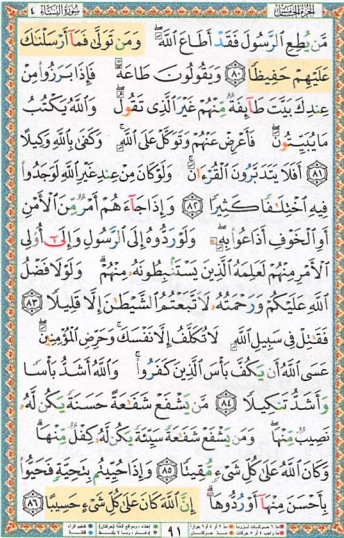 الجزء الخامس سورة النساء ٤
مَّن يُطِعِ الرَّسُولَ فَقَدْ أَطَاعَ اللَّهَ ۖ وَمَن تَوَلَّىٰ فَمَا أَرْسَلْنَاكَ
عَلَيْهِمْ حَفِيظًا ٨٠ وَيَقُولُونَ طَاعَةٌ فَإِذَا بَرَزُوا مِنْ
عِندِكَ بَيَّتَ طَائِفَةٌ مِّنْهُمْ غَيْرَ الَّذِي تَقُولُ ۖ وَاللَّهُ يَكْتُبُ
مَا يُبَيِّتُونَ ۖ فَأَعْرِضْ عَنْهُمْ وَتَوَكَّلْ عَلَى اللَّهِ ۚ وَكَفَىٰ بِاللَّهِ وَكِيلًا
٨١ أَفَلَا يَتَدَبَّرُونَ الْقُرْءَانَ ۚ وَلَوْ كَانَ مِنْ عِندِ غَيْرِ اللَّهِ لَوَجَدُوا
فِيهِ اخْتِلَافًا كَثِيرًا ٨٢ وَإِذَا جَاءَهُمْ أَمْرٌ مِّنَ الْأَمْنِ
أَوِ الْخَوْفِ أَذَاعُوا بِهِ ۖ وَلَوْ رَدُّوهُ إِلَى الرَّسُولِ وَإِلَىٰ أُولِي
الْأَمْرِ مِنْهُمْ لَعَلِمَهُ الَّذِينَ يَسْتَنبِطُونَهُ مِنْهُمْ ۗ وَلَوْلَا فَضْلُ
اللَّهِ عَلَيْكُمْ وَرَحْمَتُهُ لَاتَّبَعْتُمُ الشَّيْطَانَ إِلَّا قَلِيلًا ٨٣
فَقَاتِلْ فِي سَبِيلِ اللَّهِ لَا تُكَلَّفُ إِلَّا نَفْسَكَ ۚ وَحَرِّضِ الْمُؤْمِنِينَ ۖ
عَسَى اللَّهُ أَن يَكُفَّ بَأْسَ الَّذِينَ كَفَرُوا ۚ وَاللَّهُ أَشَدُّ بَأْسًا
وَأَشَدُّ تَنكِيلًا ٨٤ مَّن يَشْفَعْ شَفَاعَةً حَسَنَةً يَكُن لَّهُ
نَصِيبٌ مِّنْهَا ۖ وَمَن يَشْفَعْ شَفَاعَةً سَيِّئَةً يَكُن لَّهُ كِفْلٌ مِّنْهَا ۗ
وَكَانَ اللَّهُ عَلَىٰ كُلِّ شَيْءٍ مُّقِيتًا ٨٥ وَإِذَا حُيِّيتُم بِتَحِيَّةٍ فَحَيُّوا
بِأَحْسَنَ مِنْهَا أَوْ رُدُّوهَا ۗ إِنَّ اللَّهَ كَانَ عَلَىٰ كُلِّ شَيْءٍ حَسِيبًا ٨٦
٩١